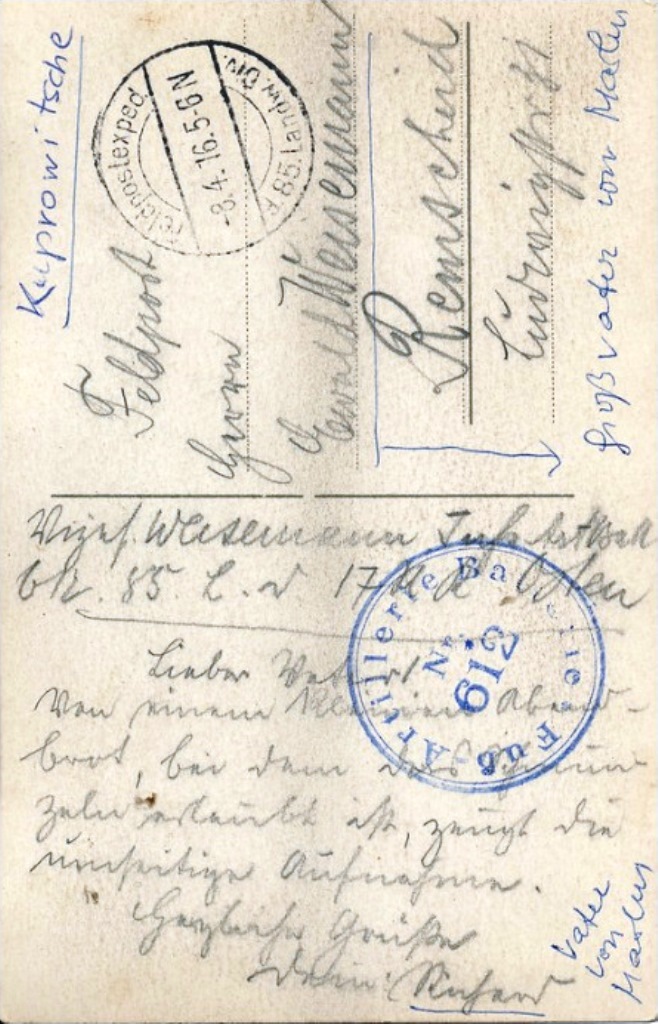 Kuprowitsche
Feldpostexped.
-8.4.16.5-6N
F 85. Landw. Div.
Feldpost
Herrn
Ewald Wiesemann
Remscheid
Ludwigstr
Großvater von
Vizef. Wiesemann Fuß Art Batt
612. 85. L. d 17 A.K. Osten
Fuß-Artillerie Batterie
Nr. 612
Lieber Vater!
Von einem kleinen Abend-
brot, bei dem das Schmun-
zeln erlaubt ist, zeugt die
umseitige Aufnahme.
Herzliche Grüße
Dein Richard
Vater
von